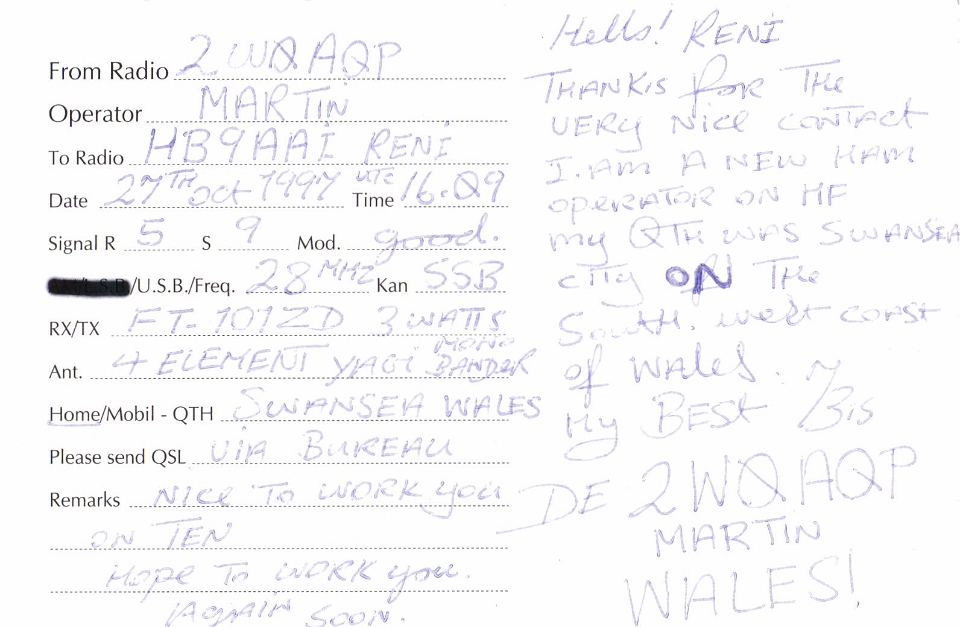 From Radio 2WØAQP
Operator MARTIN
To Radio HB9AAI RENI
Date 27TH oct 1997 UTC Time 16.09
Signal R 5 S 9 Mod. good.
/L.S.B/U.S.B./Freq. 28 MHZ Kan SSB
RX/TX FT-101ZD 3 WATTS
Ant. 4 ELEMENT YAGI MONO BANDER
Home/Mobil - QTH SWANSEA WALES
Please send QSL VIA BUREAU
Remarks NICE TO WORK YOU
ON TEN
HOPE TO WORK you.
AGAIN SOON.
Hello! RENI
THANKS for THE
VERY NICE CONTACT
I.AM A NEW HAM
OPERATOR ON HF
my QTH WAS SWANSEA
CITY ON THE
South. west coast
of WALES.
My BEST 73is
DE 2WØAQP
MARTIN
WALES!